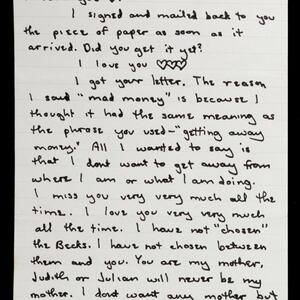 I signed and mailed back to you
the piece of paper as soon as it
arrived. Did you get it yet?
I love you ♡♡♡
I got your letter. The reason
I said "mad money" is because I
thought it had the same meaning as
the phrase you used—"getting away
money." All I wanted to say is
that I dont want to get away from
where I am or what I am doing.
I miss you very very much all the
time. I love you very very much
all the time. I have not "chosen"
the Becks. I have not chosen between
them and you. You are my mother,
Judith or Julian will never be my
mother. I dont want any mother but